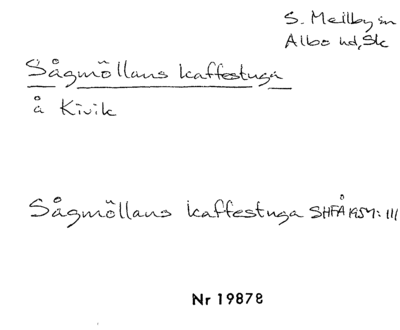 S. Mellby sn
Albo hd, Sk
Sågmöllans kaffestuga
å Kivik
Sågmöllans kaffestuga SHFÅ 1957: 111
Nr 19878